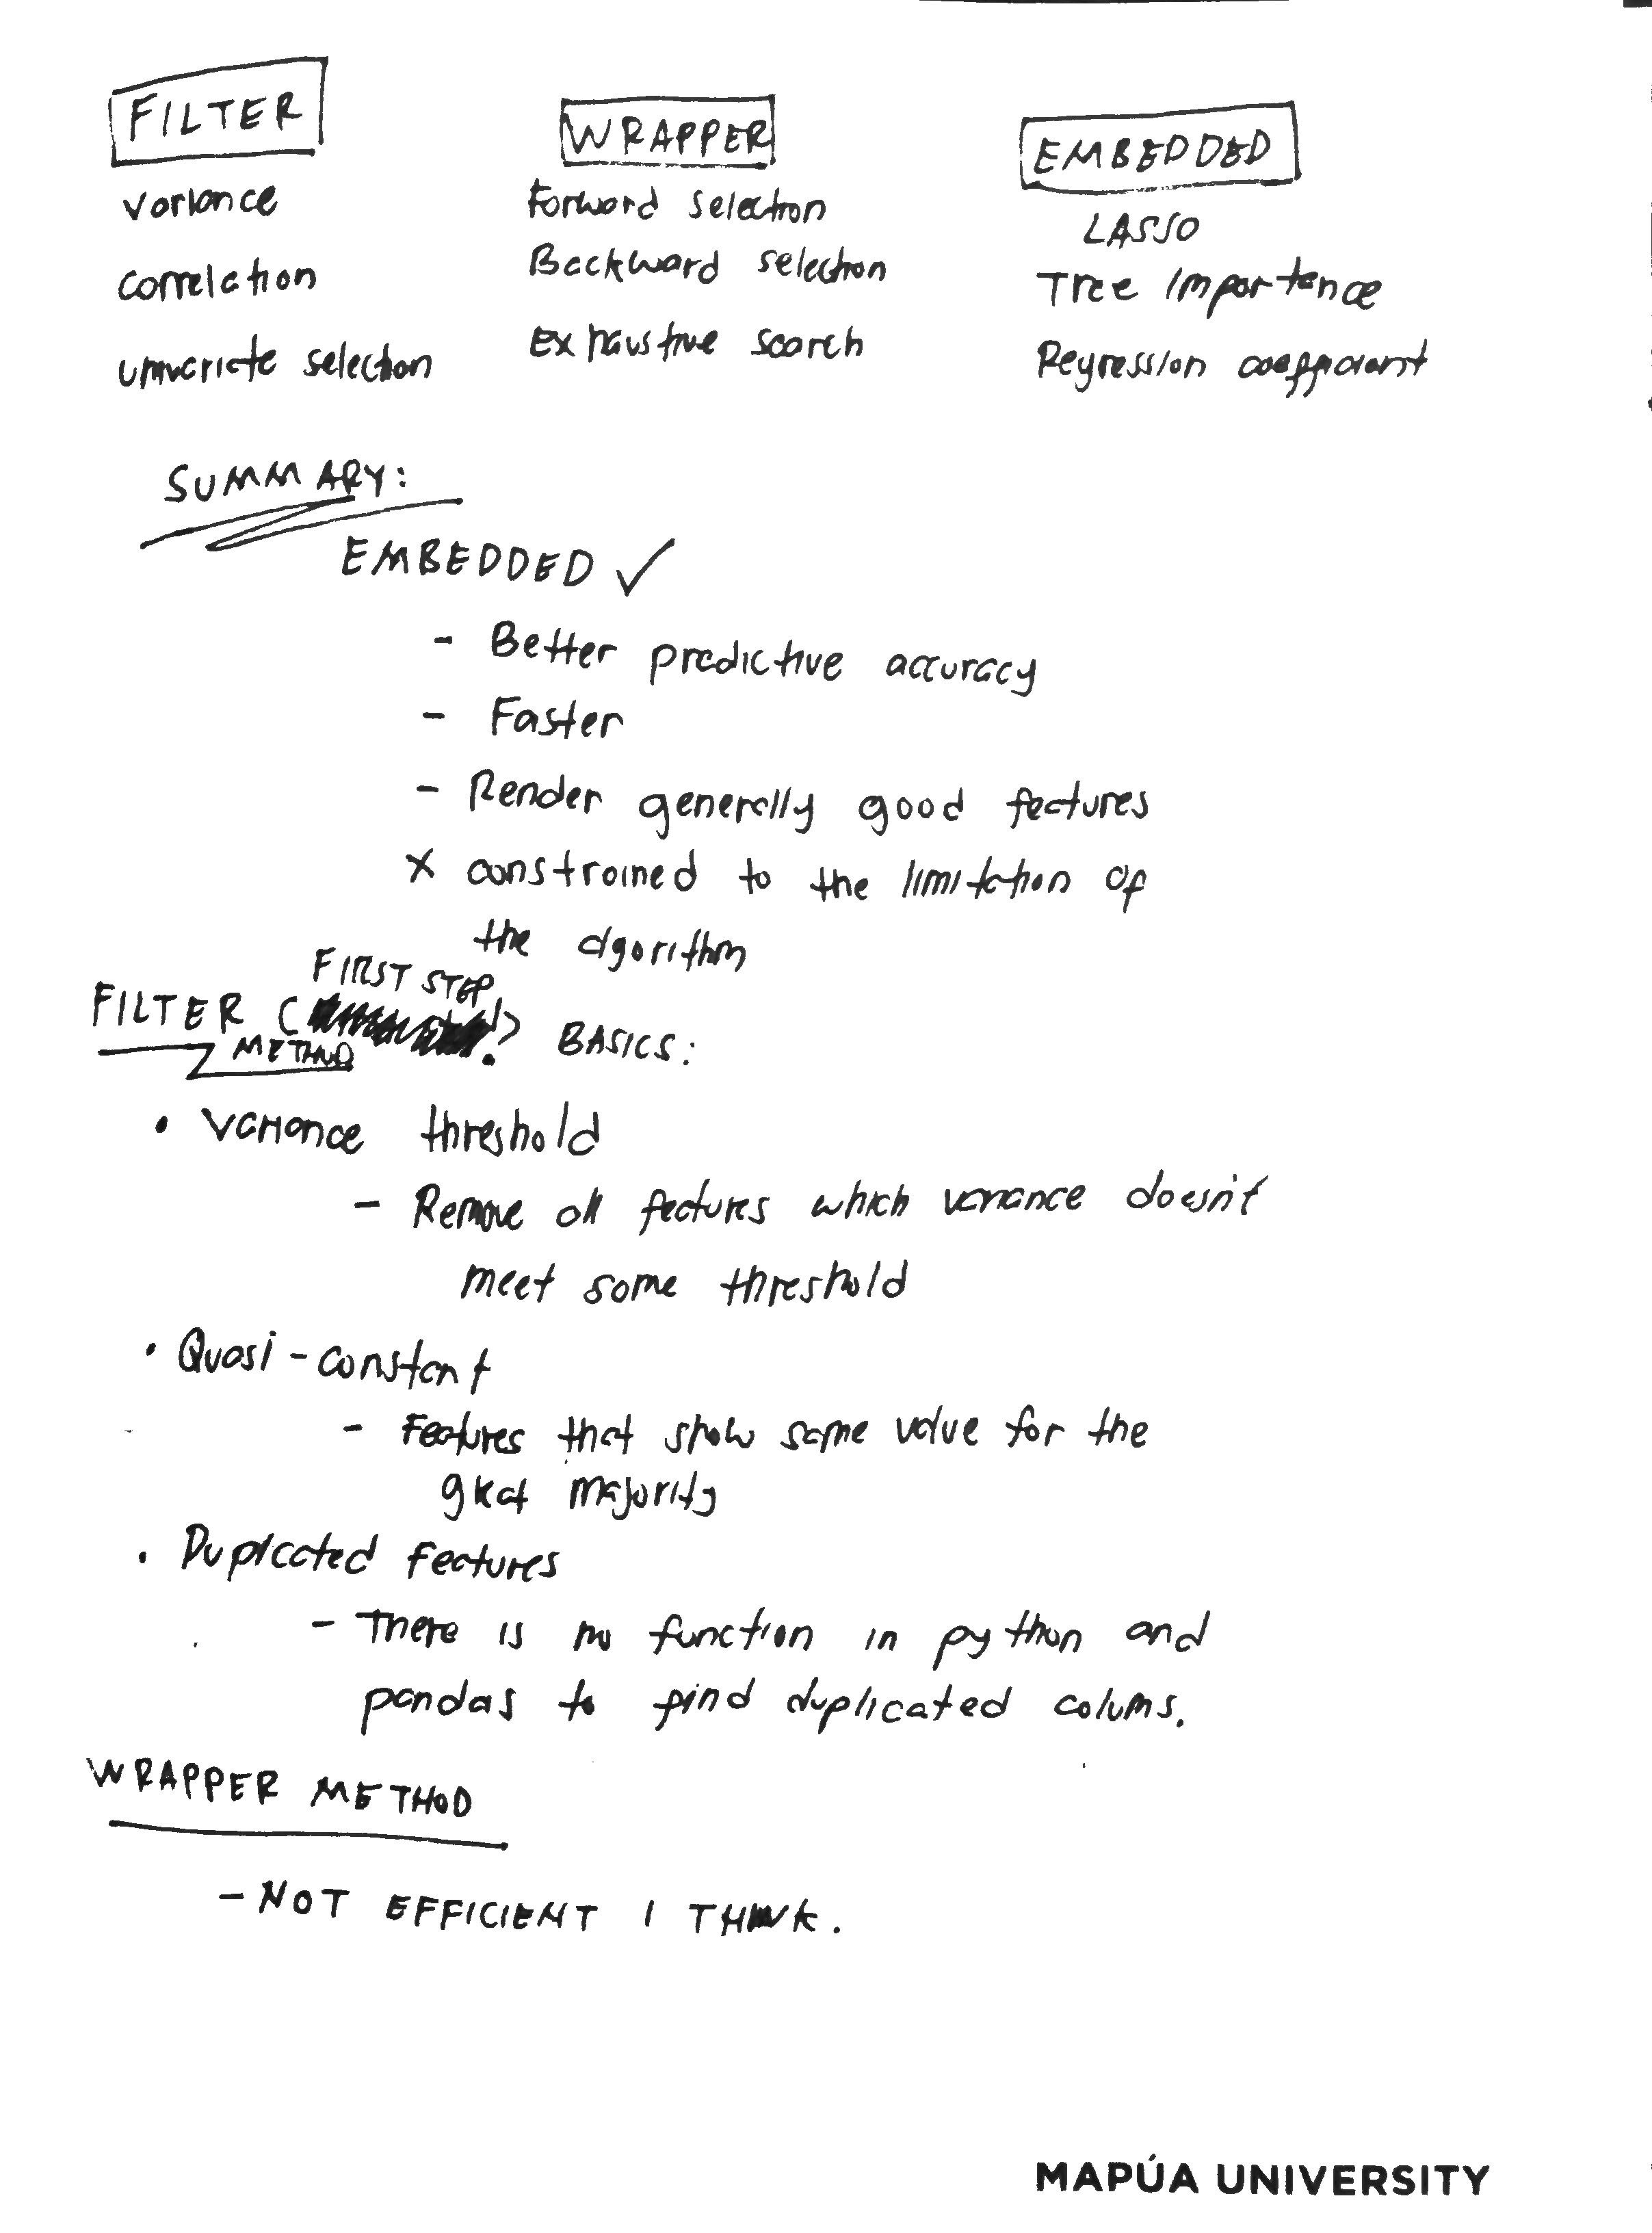 FILTER WRAPPER EMBEDDED
variance Forward selection LASSO
correlation Backward selection Tree importance
univariate selection Exhaustive search Regression coefficient
SUMMARY:
EMBEDDED ✓
- Better predictive accuracy
- Faster
- Render generally good features
X constrained to the limitation of
the algorithm
FIRST STEP
FILTER ( !) BASICS:
METHOD
• Variance threshold
- Remove all features which variance doesn't
meet some threshold
• Quasi-constant
- Features that show same value for the
great majority
• Duplicated features
- There is no function in python and
pandas to find duplicated colums.
WRAPPER METHOD
- NOT EFFICIENT I THINK.
MAPÚA UNIVERSITY